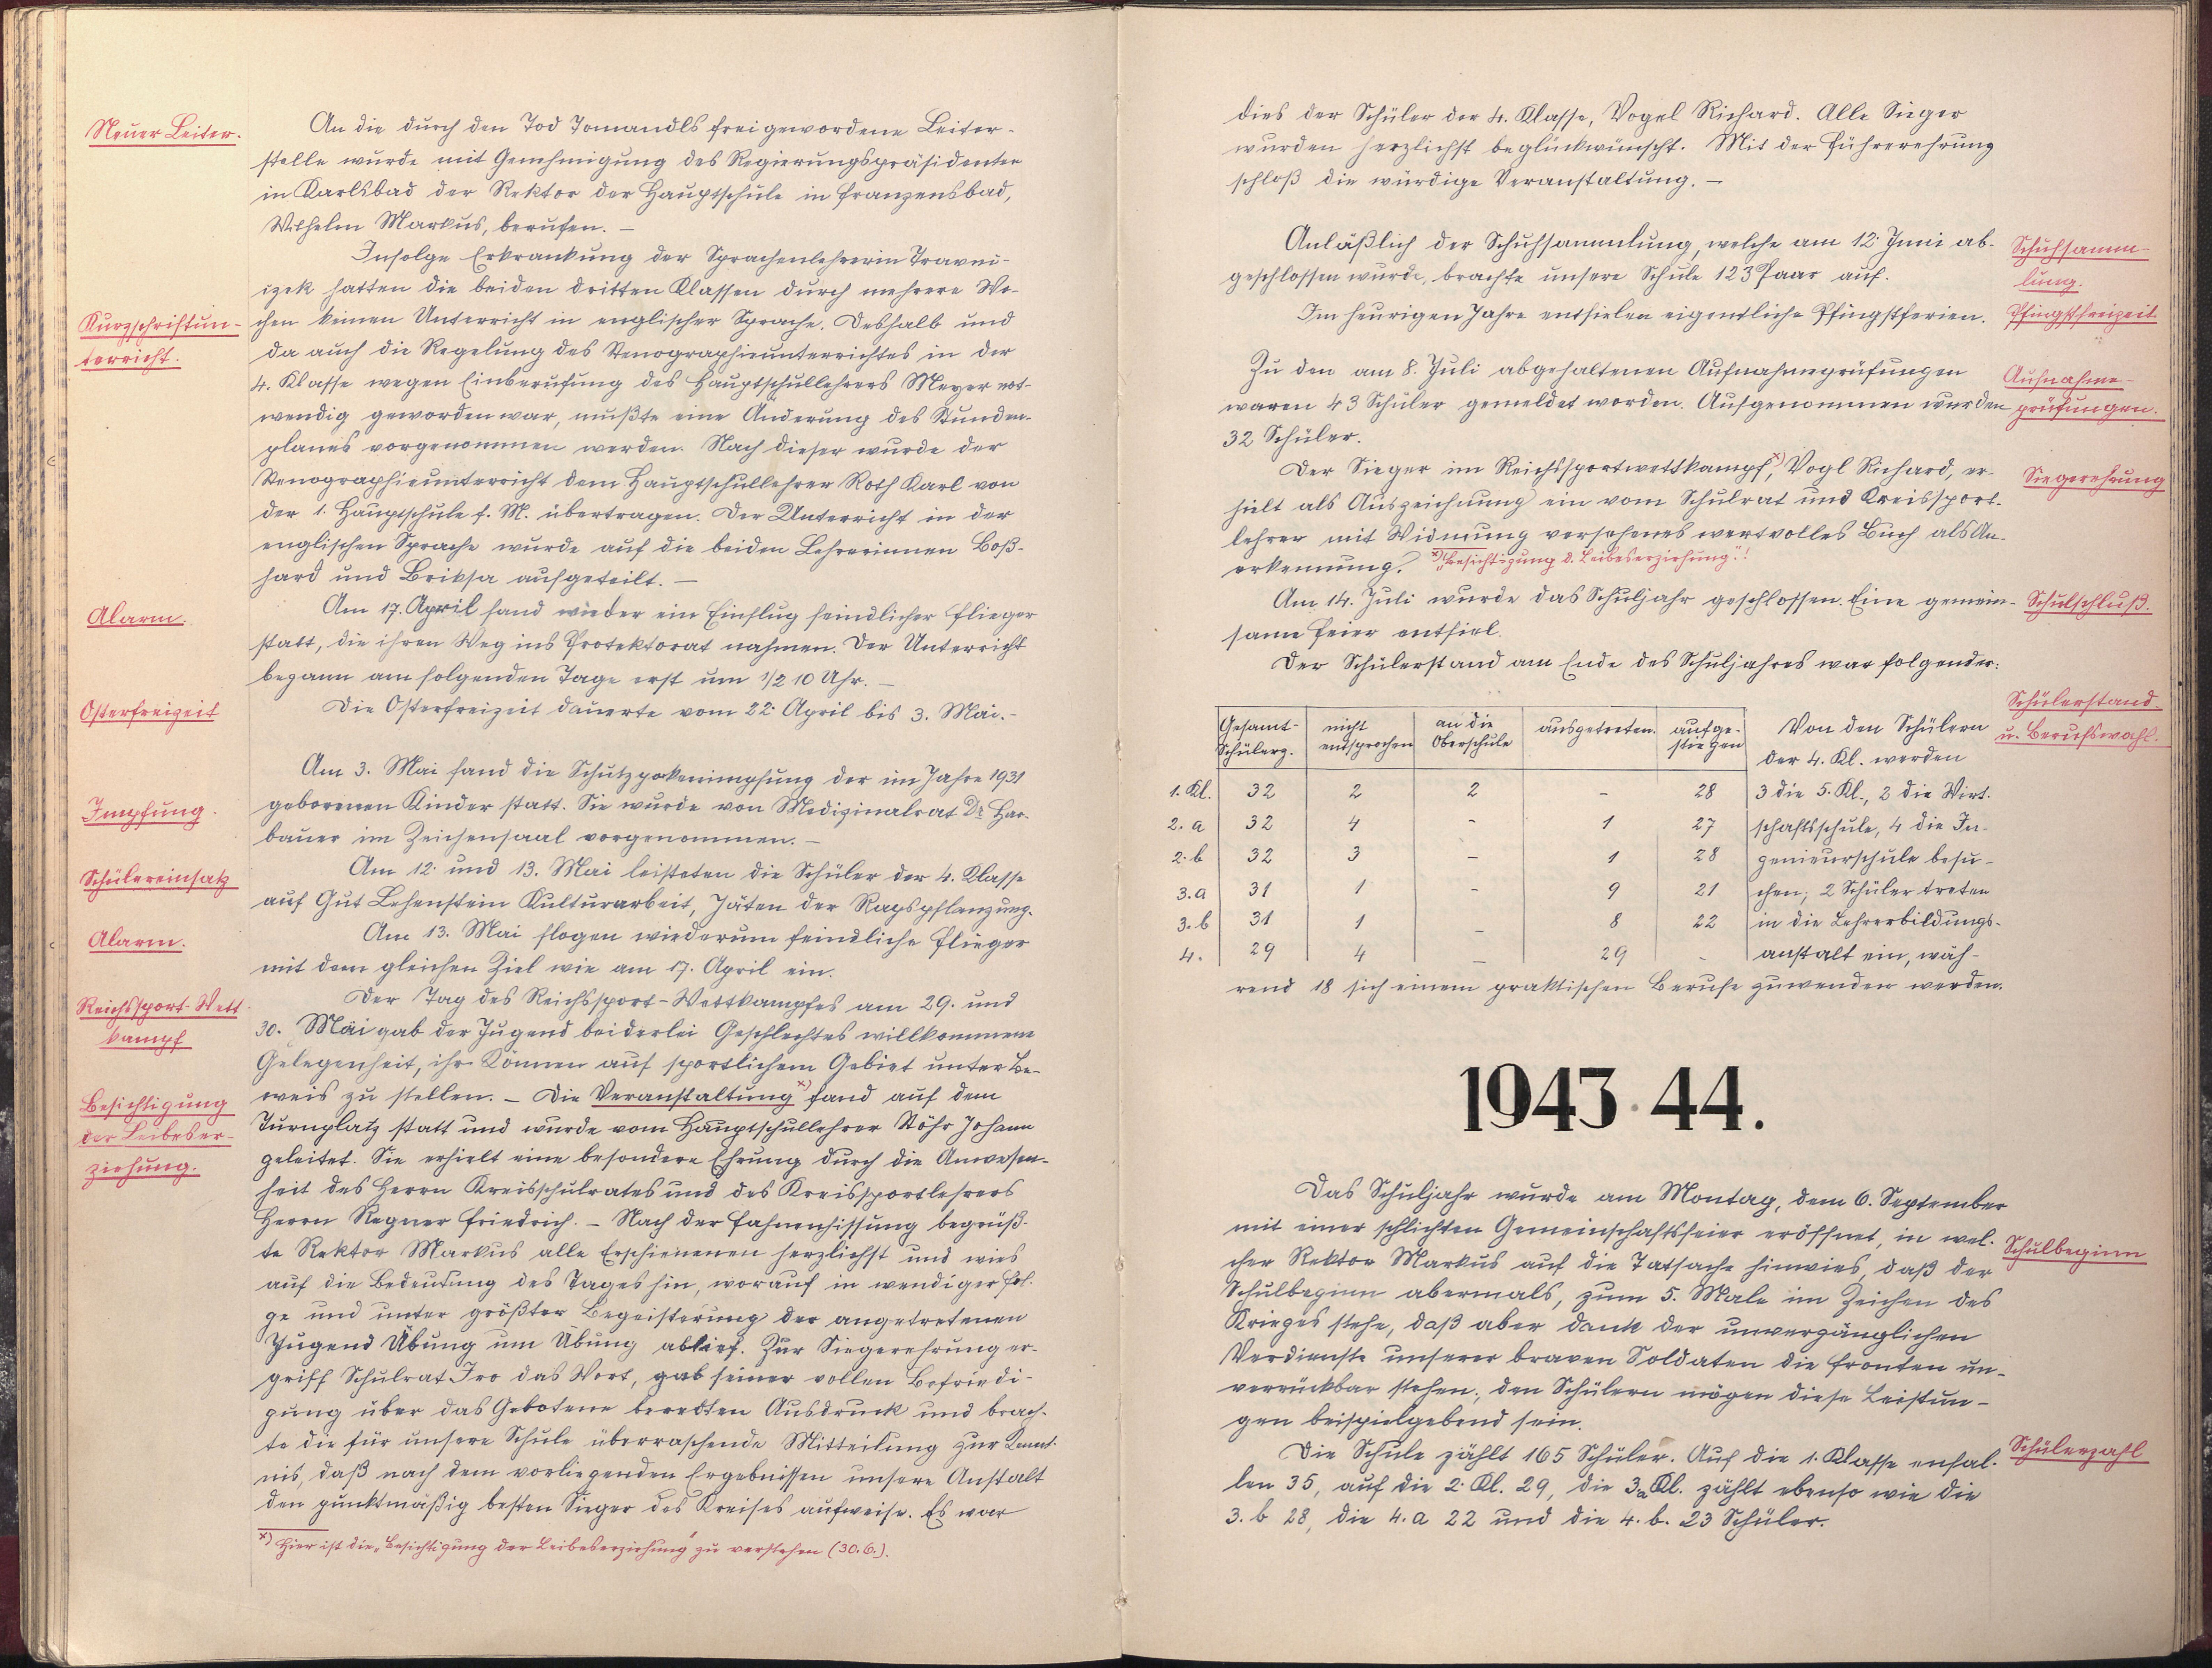 Neuer Leiter.
An die durch den Tod Tomandls frei gewordene Leiter-
stelle wurde mit Genehmigung des Regierungspräsidenten
in Karlsbad der Rektor der Hauptschule in Franzensbad,
Wilhelm Markus, berufen. –
Infolge Erkrankung der Sprachenlehrerin Travni-
izek hatten die beiden dritten Klassen durch mehrere Wo-
Kurzschriftun-
terricht.
chen keinen Unterricht in englischer Sprache. Deshalb und
da auch die Regelung des Stenographieunterrichtes in der
4. Klasse wegen Einberufung des Hauptschullehrers Meyer not-
wendig geworden war, mußte eine Änderung des Stunden-
planes vorgenommen werden. Nach dieser wurde der
Stenographieunterricht dem Hauptschullehrer Roth Karl von
der 1. Hauptschule f. M. übertragen. Der Unterricht in der
englischen Sprache wurde auf die beiden Lehrerinnen Boß-
hard und Briksa aufgeteilt. –
Alarm.
Am 17. April fand wieder ein Einflug feindlicher Flieger
statt, die ihren Weg ins Protektorat nahmen. Der Unterricht
begann am folgenden Tage erst um 1/2 10 Uhr. –
Osterfreizeit
Die Osterfreizeit dauerte vom 22. April bis 3. Mai. –
Am 3. Mai fand die Schutzpockenimpfung der im Jahre 1931
Impfung.
geborenen Kinder statt. Sie wurde von Medizinalrat Dr. Har-
bauer im Zeichensaal vorgenommen. –
Schülereinsatz
Am 12. und 13. Mai leisteten die Schüler der 4. Klasse
auf Gut Lehenstein Kulturarbeit, Jäten der Rapspflanzung.
Alarm.
Am 13. Mai flogen wiederum feindliche Flieger
mit dem gleichen Ziel wie am 17. April ein.
Reichssport-Wett-
kampf
Der Tag des Reichssport-Wettkampfes am 29. und
30. Mai gab der Jugend beiderlei Geschlechtes willkommene
Gelegenheit, ihr Können auf sportlichem Gebiet unter Be-
Besichtigung
der Leibeser-
ziehung.
weis zu stellen. – Die Veranstaltung x) fand auf dem
Turnplatz statt und wurde vom Hauptschullehrer Stöhr Johann
geleitet. Sie erhielt eine besondere Ehrung durch die Anwesen-
heit des Herrn Kreisschulrates und des Kreissportlehrers
Herrn Regner Friedrich. – Nach der Fahnenhissung begrüß-
te Rektor Markus alle Erschienenen herzlichst und wies
auf die Bedeutung des Tages hin, worauf in wendiger Fol-
ge und unter größter Begeisterung der angetretenen
Jugend Übung um Übung ablief. Zur Siegerehrung er-
griff Schulrat Iro das Wort, gab seiner vollen Befriedi-
gung über das Gebotene beredten Ausdruck und brach-
te die für unsere Schule überraschende Mitteilung zur Kennt-
nis, daß nach dem vorliegenden Ergebnissen unsere Anstalt
den punktmäßig besten Sieger des Kreises aufweise. Es war
x) Hier ist die „Besichtigung der Leibeserziehung" zu verstehen (30.6.).
dies der Schüler der 4. Klasse, Vogel Richard. Alle Sieger
wurden herzlichst beglückwünscht. Mit der Führerehrung
schloß die würdige Veranstaltung. –
Anläßlich der Schuhsammlung, welche am 12. Juni ab-
geschlossen wurde, brachte unsere Schule 123 Paar auf.
Schuhsamm-
lung.
Im heurigen Jahre entfielen eigentliche Pfingstferien.
Pfingstfreizeit
Zu den am 8. Juli abgehaltenen Aufnahmsprüfungen
waren 43 Schüler gemeldet worden. Aufgenommen wurden
32 Schüler.
Aufnahme-
prüfungen.
Der Sieger im Reichssportwettkampf, x) Vogl Richard, er-
hielt als Auszeichnung ein vom Schulrat und Kreissport-
lehrer mit Widmung versehenes wertvolles Buch als An-
erkennung. x) „Besichtigung d. Leibeserziehung"!
Siegerehrung
Am 14. Juli wurde das Schuljahr geschlossen. Eine gemein-
same Feier entfiel.
Schulschluß.
Der Schülerstand am Ende des Schuljahres war folgender:
Schülerstand
u. Berufswahl.
Gesamt-Schülerz. nicht entsprochen an die Oberschule ausgetreten. aufge-stiegen Von den Schülern
der 4. Kl. werden
1. Kl. 32 2 2 – 28 3 die 5. Kl., 2 die Wirt-
2. a 32 4 – 1 27 schaftsschule, 4 die In-
2. b 32 3 – 1 28 genieurschule besu-
3. a 31 1 – 9 21 chen; 2 Schüler treten
3. b 31 1 – 8 22 in die Lehrerbildungs-
4. 29 4 – 29 – anstalt ein, wäh-
rend 18 sich einem praktischen Berufe zuwenden werden.
1943·44.
Das Schuljahr wurde am Montag, dem 6. September
mit einer schlichten Gemeinschaftsfeier eröffnet, in wel-
cher Rektor Markus auf die Tatsache hinwies, daß der
Schulbeginn
Schulbeginn abermals, zum 5. Male im Zeichen des
Krieges stehe, daß aber dank der unvergänglichen
Verdienste unserer braven Soldaten die Fronten un-
verrückbar stehen; den Schülern mögen diese Leistun-
gen beispielgebend sein.
Die Schule zählt 165 Schüler. Auf die 1. Klasse enfal-
Schülerzahl
len 35, auf die 2. Kl. 29, die 3.a Kl. zählt ebenso wie die
3. b 28, die 4. a 22 und die 4. b. 23 Schüler.